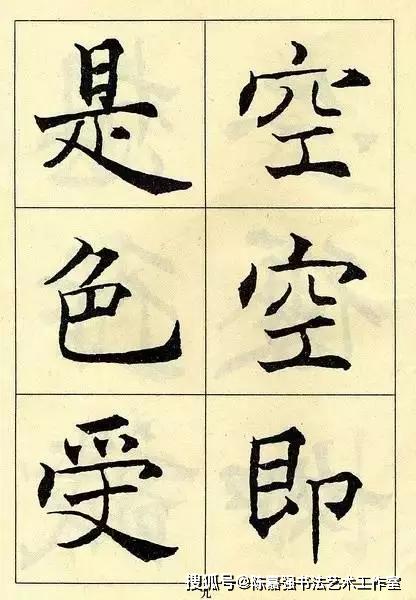 空空即
是色受
九
搜狐号@陈嘉强书法艺术工作室